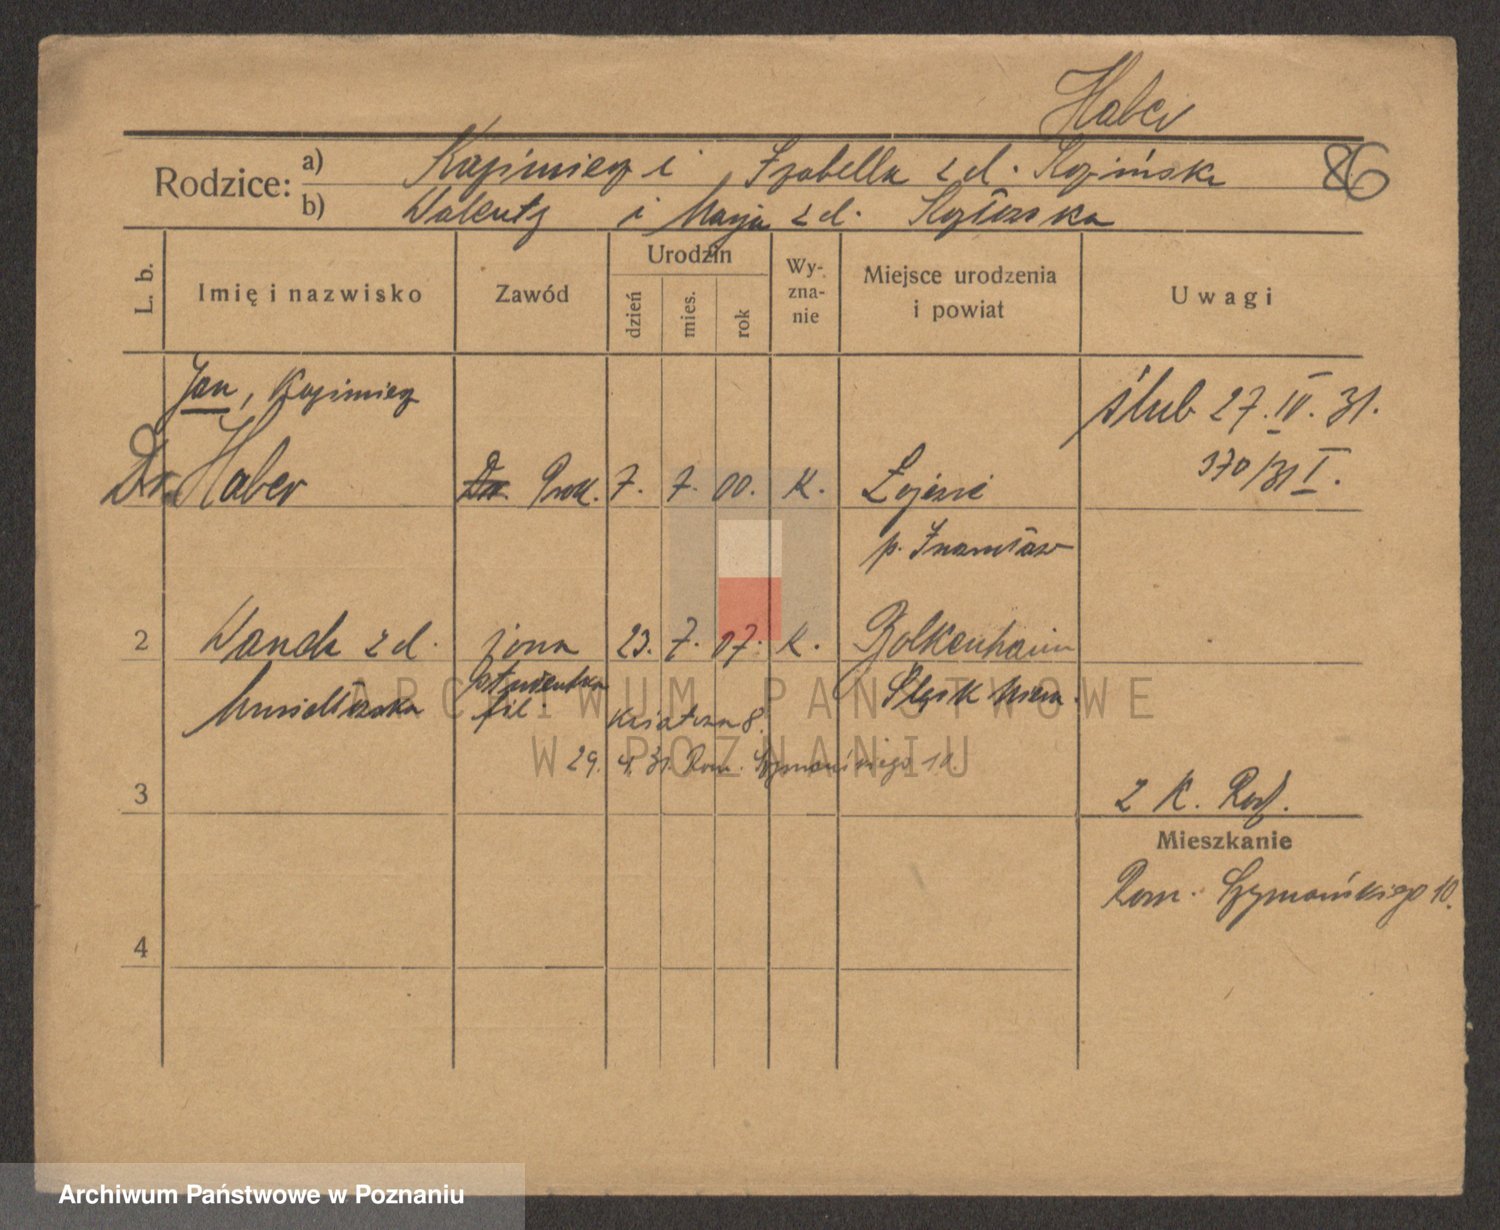 Haber
86
Rodzice:
a) Kazimierz i Izabella z d. Kozińska
b) Walenty i Marja z d. Kozłowska
L. b.
Imię i nazwisko
Zawód
Urodzin
dzień
mies.
rok
Wy-
zna-
nie
Miejsce urodzenia
i powiat
Uwagi
Jan, Kazimierz
Dr. Haber
Prok.
7. 7. 00. K.
p. Inowrocław
ślub 27. IV. 31.
370/31 I.
2 Wanda z d. żona 23. 7. 07. K. Bolkenhain
Musielewska studentka Śląsk Niem.
fil.
29. 4. 31. Rom. Szymańskiego 10.
3
2 K. Rodz.
Mieszkanie
Rom. Szymańskiego 10.
4
ARCHIWUM PAŃSTWOWE
W POZNANIU
Archiwum Państwowe w Poznaniu